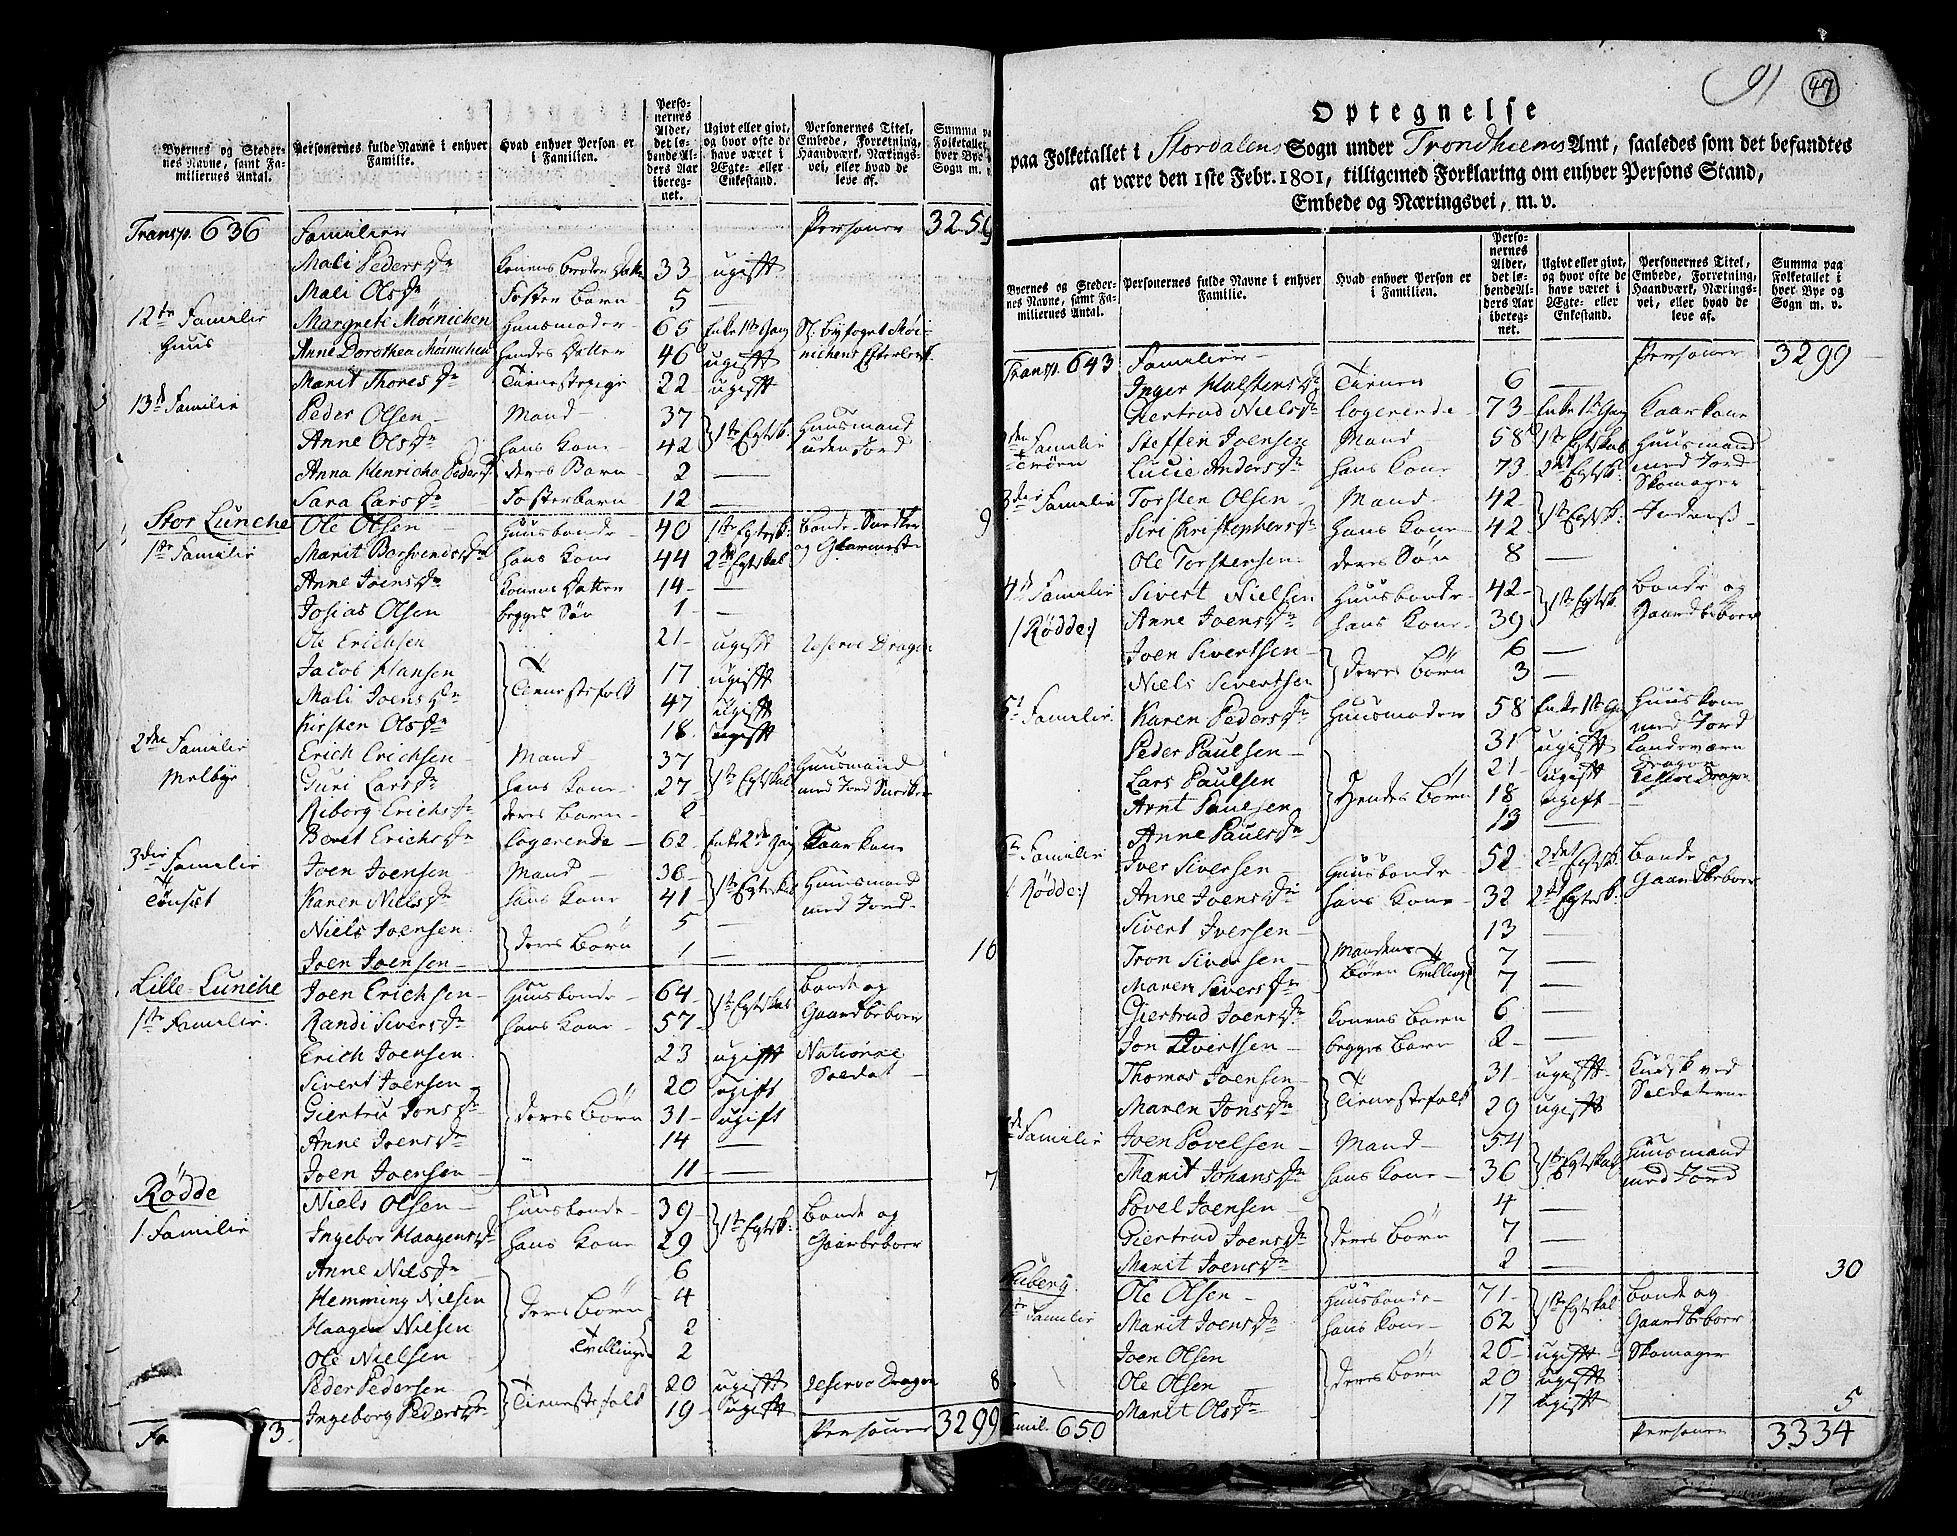 Byernes og Steder-
nes Navne, samt Fa-
miliernes Antal.
Personernes fulde Navne i enhver
Familie.
Hvad enhver Person er
i Familien.
Perso-
nernes
Alder,
det lø-
bende Al-
ders Aar
ibereg-
net.
Ugivt eller givt,
og hvor ofte de
have været i
Ægte- eller
Enkestand.
Personernes Titel,
Embede, Forretning,
Haandværk, Nærings-
vei, eller hvad de
leve af.
Summa pa
Folketallet
hver Bye
Sogn m. v.
Transp. 636 Familier Personer 3256
Mali Pedersdr Konens broder Datter 33 ugift
Mali Olsdr Foster Barn 5 —
12te Familie Margrete Møinichen Huusmoder 65 Enke 1ste Gang Sl. Byfoget Møi-
Huus Anne Dorothea Møinichen hendes Datter 46 ugift nichens Efterlevsk.
Marit Thoresdr Tienestepige 22 ugift
13de Familie Peder Olsen Mand 37 1ste Egtesk. Huusmand
Anne Olsdr hans Kone 42 uden Jord
Anna Henricha Pedersdr deres Barn 2 —
Sara Larsdr Fosterbarn 12 — 9
Stor Lunche Ole Olsen Huusbonde 40 1ste Egtesk. Bonde Snedker
1ste Familie Marit Barsvendsdr hans Kone 44 2det Egteskab og Glarmester
Anne Joensdr Konens Datter 14 —
Josias Olsen begges Søn 1 —
Ole Erichsen 21 ugift Reserve Dragon
Jacob Hansen Tienestefolk 17 ugift
Mali Joensdr 47 ugift
Kirsten Olsdr 18 ugift
2den Familie Erich Erichsen Mand 37 1ste Egteskab Huusmand
Melbye Guri Larsdr hans Kone 27 med Jord Snedker
Riborg Erichsdr deres Barn 2
Boret Erichsdr Logerende 62 Enke 2den Gang Kaarkone
3die Familie Joen Joensen Mand 36 1ste Egteskab Huusmand
Tønset Karen Nielsdr hans Kone 41 med Jord
Niels Joensen deres Børn 5 —
Joen Joensen 1 — 16
Lille Lunche Joen Erichsen Huusbonde 64 1ste Egteskab Bonde og
1ste Familie Randi Siversdr hans Kone 57 Gaardbeboer
Erich Joensen 23 ugift National
Sivert Joensen 20 ugift Soldat
Giertru Jonsdr deres Børn 31 ugift
Anne Joensdr 14 —
Joen Joensen 11 — 7
Rødde Niels Olsen Huusbonde 39 1ste Egtesk. Bonde og
1 Familie Ingebor Haagensdr hans Kone 29 Gaardbeboer
Anne Nielsdr 6
Hemming Nielsen deres Børn 4
Haagen Nielsen Tvillinger 2
Ole Nielsen 2
Peder Pedersen Tienestefolk 20 ugift Reserve Dragon 8
Ingeborg Pedersdr 19 ugift
Fa 3. Personer 3299
91 47
Optegnelse
paa Folketallet i Stordalens Sogn under Trondhiems Amt, saaledes som det befandtes
at være den 1ste Febr. 1801, tilligemed Forklaring om enhver Persons Stand,
Embede og Næringsvei, m. v.
Byernes og Steder-
nes Navne, samt Fa-
miliernes Antal.
Personernes fulde Navne i enhver
Familie.
Hvad enhver Person er
i Familien.
Perso-
nernes
Alder,
det lø-
bende Al-
ders Aar
ibereg-
net.
Ugivt eller givt,
og hvor ofte de
have været i
Ægte- eller
Enkestand.
Personernes Titel,
Embede, Forretning,
Haandværk, Nærings-
vei, eller hvad de
leve af.
Summa paa
Folketallet i
hver Bye og
Sogn m. v.
Transp. 643 Familier Personer 3299
Inger Halstensdr Tiener 6 —
Giertrud Nielsdr Logerende 73 Enke 1ste Gang Kaarkone
2den Familie Steffen Joensen Mand 58 1ste Egteskab Huusmand
Trøen Lucie Andersdr hans Kone 73 2det Egtesk. med Jord
Skomager
3die Familie Torsten Olsen Mand 42 1ste Egtesk.
Siri Christophersdr hans Kone 42
Ole Torstensen deres Søn 8 —
4de Familie Sivert Nielsen Huusbonde 42 1ste Egtesk. Bonde og
/Rødde:/ Anne Joensdr hans Kone 39 Gaardbeboer
Joen Sivertsen deres Børn 6 —
Niels Sivertsen 3 —
5te Familie Karen Pedersdr Huusmoder 58 Enke 1ste Gang Huuskone
med Jord
Peder Paulsen 31 ugift Landeværn
Dragon
Lars Paulsen hendes Børn 21 ugift Reserve Dragon
Arnt Paulsen 18 ugift —
Anne Paulsdr 13 —
6te Familie Iver Siversen Huusbonde 52 2det Egtesk. Bonde og
/Rødde:/ Anne Joensdr hans Kone 32 2det Egtesk. Gaardbeboer
Sivert Iversen 13 —
Tron Siversen Mandens 7 —
Maren Siversdr Børn Tvillinger 7 —
Giertrud Joensdr Konens Barn 6 —
Jon Ivertsen begges Barn 2 —
Thomas Joensen Tienestefolk 31 ugift Kudsk ved
Maren Jonsdr 29 ugift Soldaterne
7de Familie Joen Povelsen Mand 54 1ste Egteskab Huusmand
Marit Johansdr hans Kone 36 med Jord
Povel Joensen 4 —
Giertrud Joensdr deres Børn 7 —
Marit Joensdr 2 — 30
Auberg Ole Olsen Huusbonde 71 1ste Egteskab Bonde og
1ste Familie Marit Joensdr hans Kone 62 Gaardbeboer
Joen Olsen 26 ugift Skomager
Ole Olsen deres Børn 20 ugift
Marit Olsdr 17 ugift 5
Famil. 650 Personer 3334